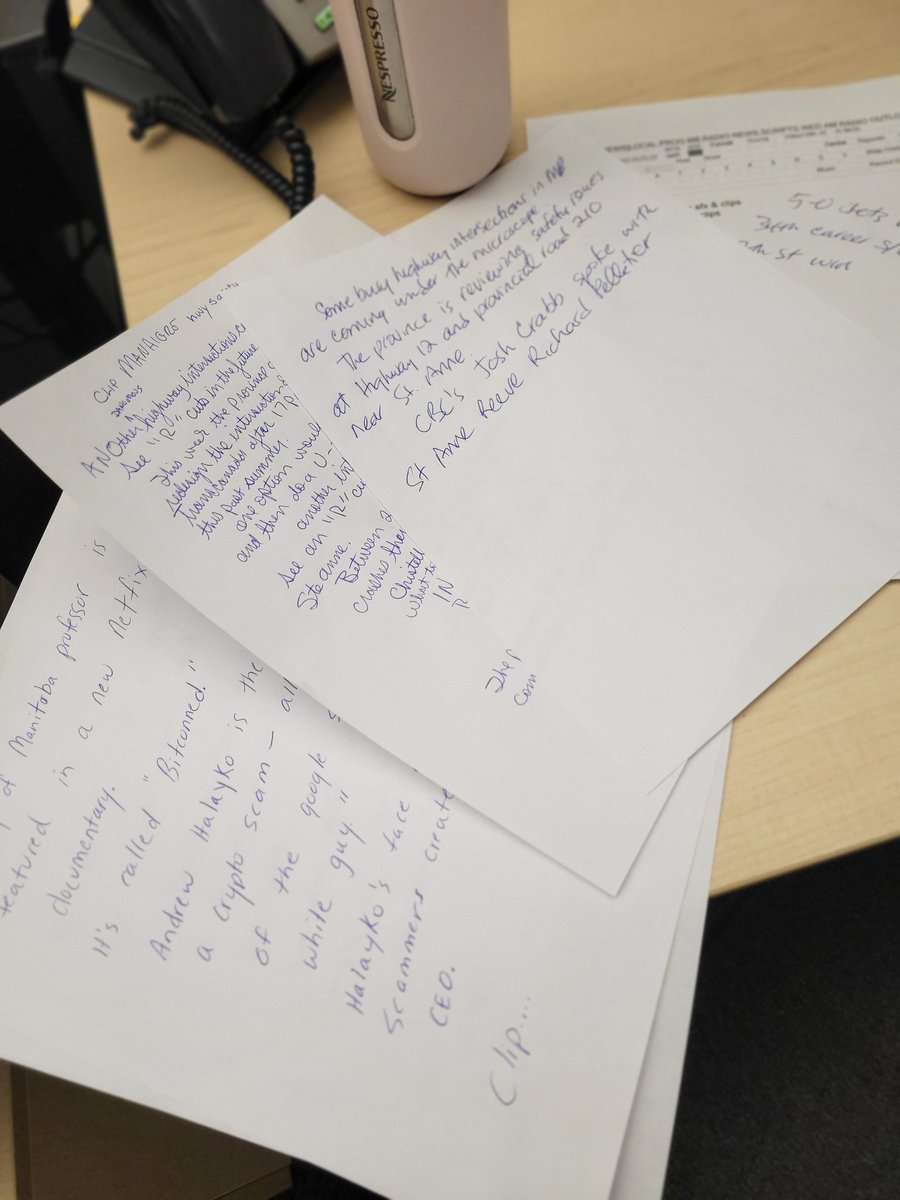 NESPRESSO
Some busy highway intersections in
are coming under the microscope.
The province is reviewing safety issues
at Highway 12 and provincial road 210
near St. Anne
CBC's Josh Crabb spoke with
St Anne Reeve Richard Pelletier
CLIP MANAIGRE
DANGEROUS
ANOther highway intersections
see "R" cuts in the future
This week the Province
redesign the intersection
Transcanada after 17
this past summer.
one option would
and then do a U-
another int
see an "R" cu
Ste anne.
Between 2
crashes ther
Christell
What to
IN
The P
Com
of Manitoba professor is
featured in a new Netflix
documentary.
It's called "Bitconned."
Andrew Halayko is the
a crypto scam - all
of the google
white guy."
Halayko's face
Scammers create
CEO.
Clip...
RADIO NEWS SCRIPTS
sfx & clips
clips
5-0 Jets
34th career